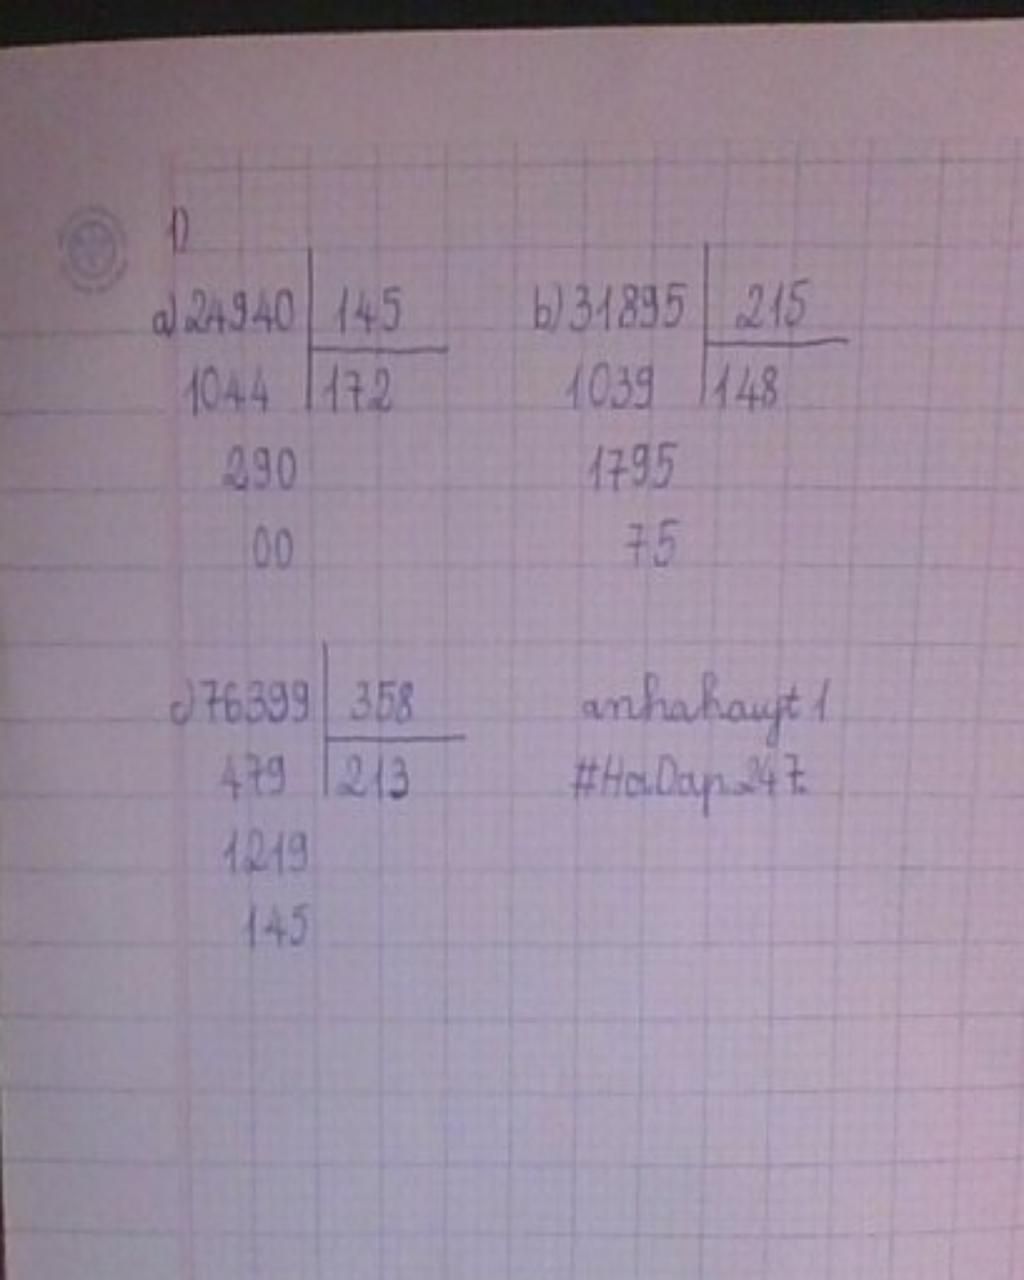 1)
a) 24940 | 145
1044 | 172
290
00
b) 31895 | 215
1039 | 148
1795
75
c) 76399 | 358
479 | 213
1219
145
anhahaujt 1
#HoiDap247.